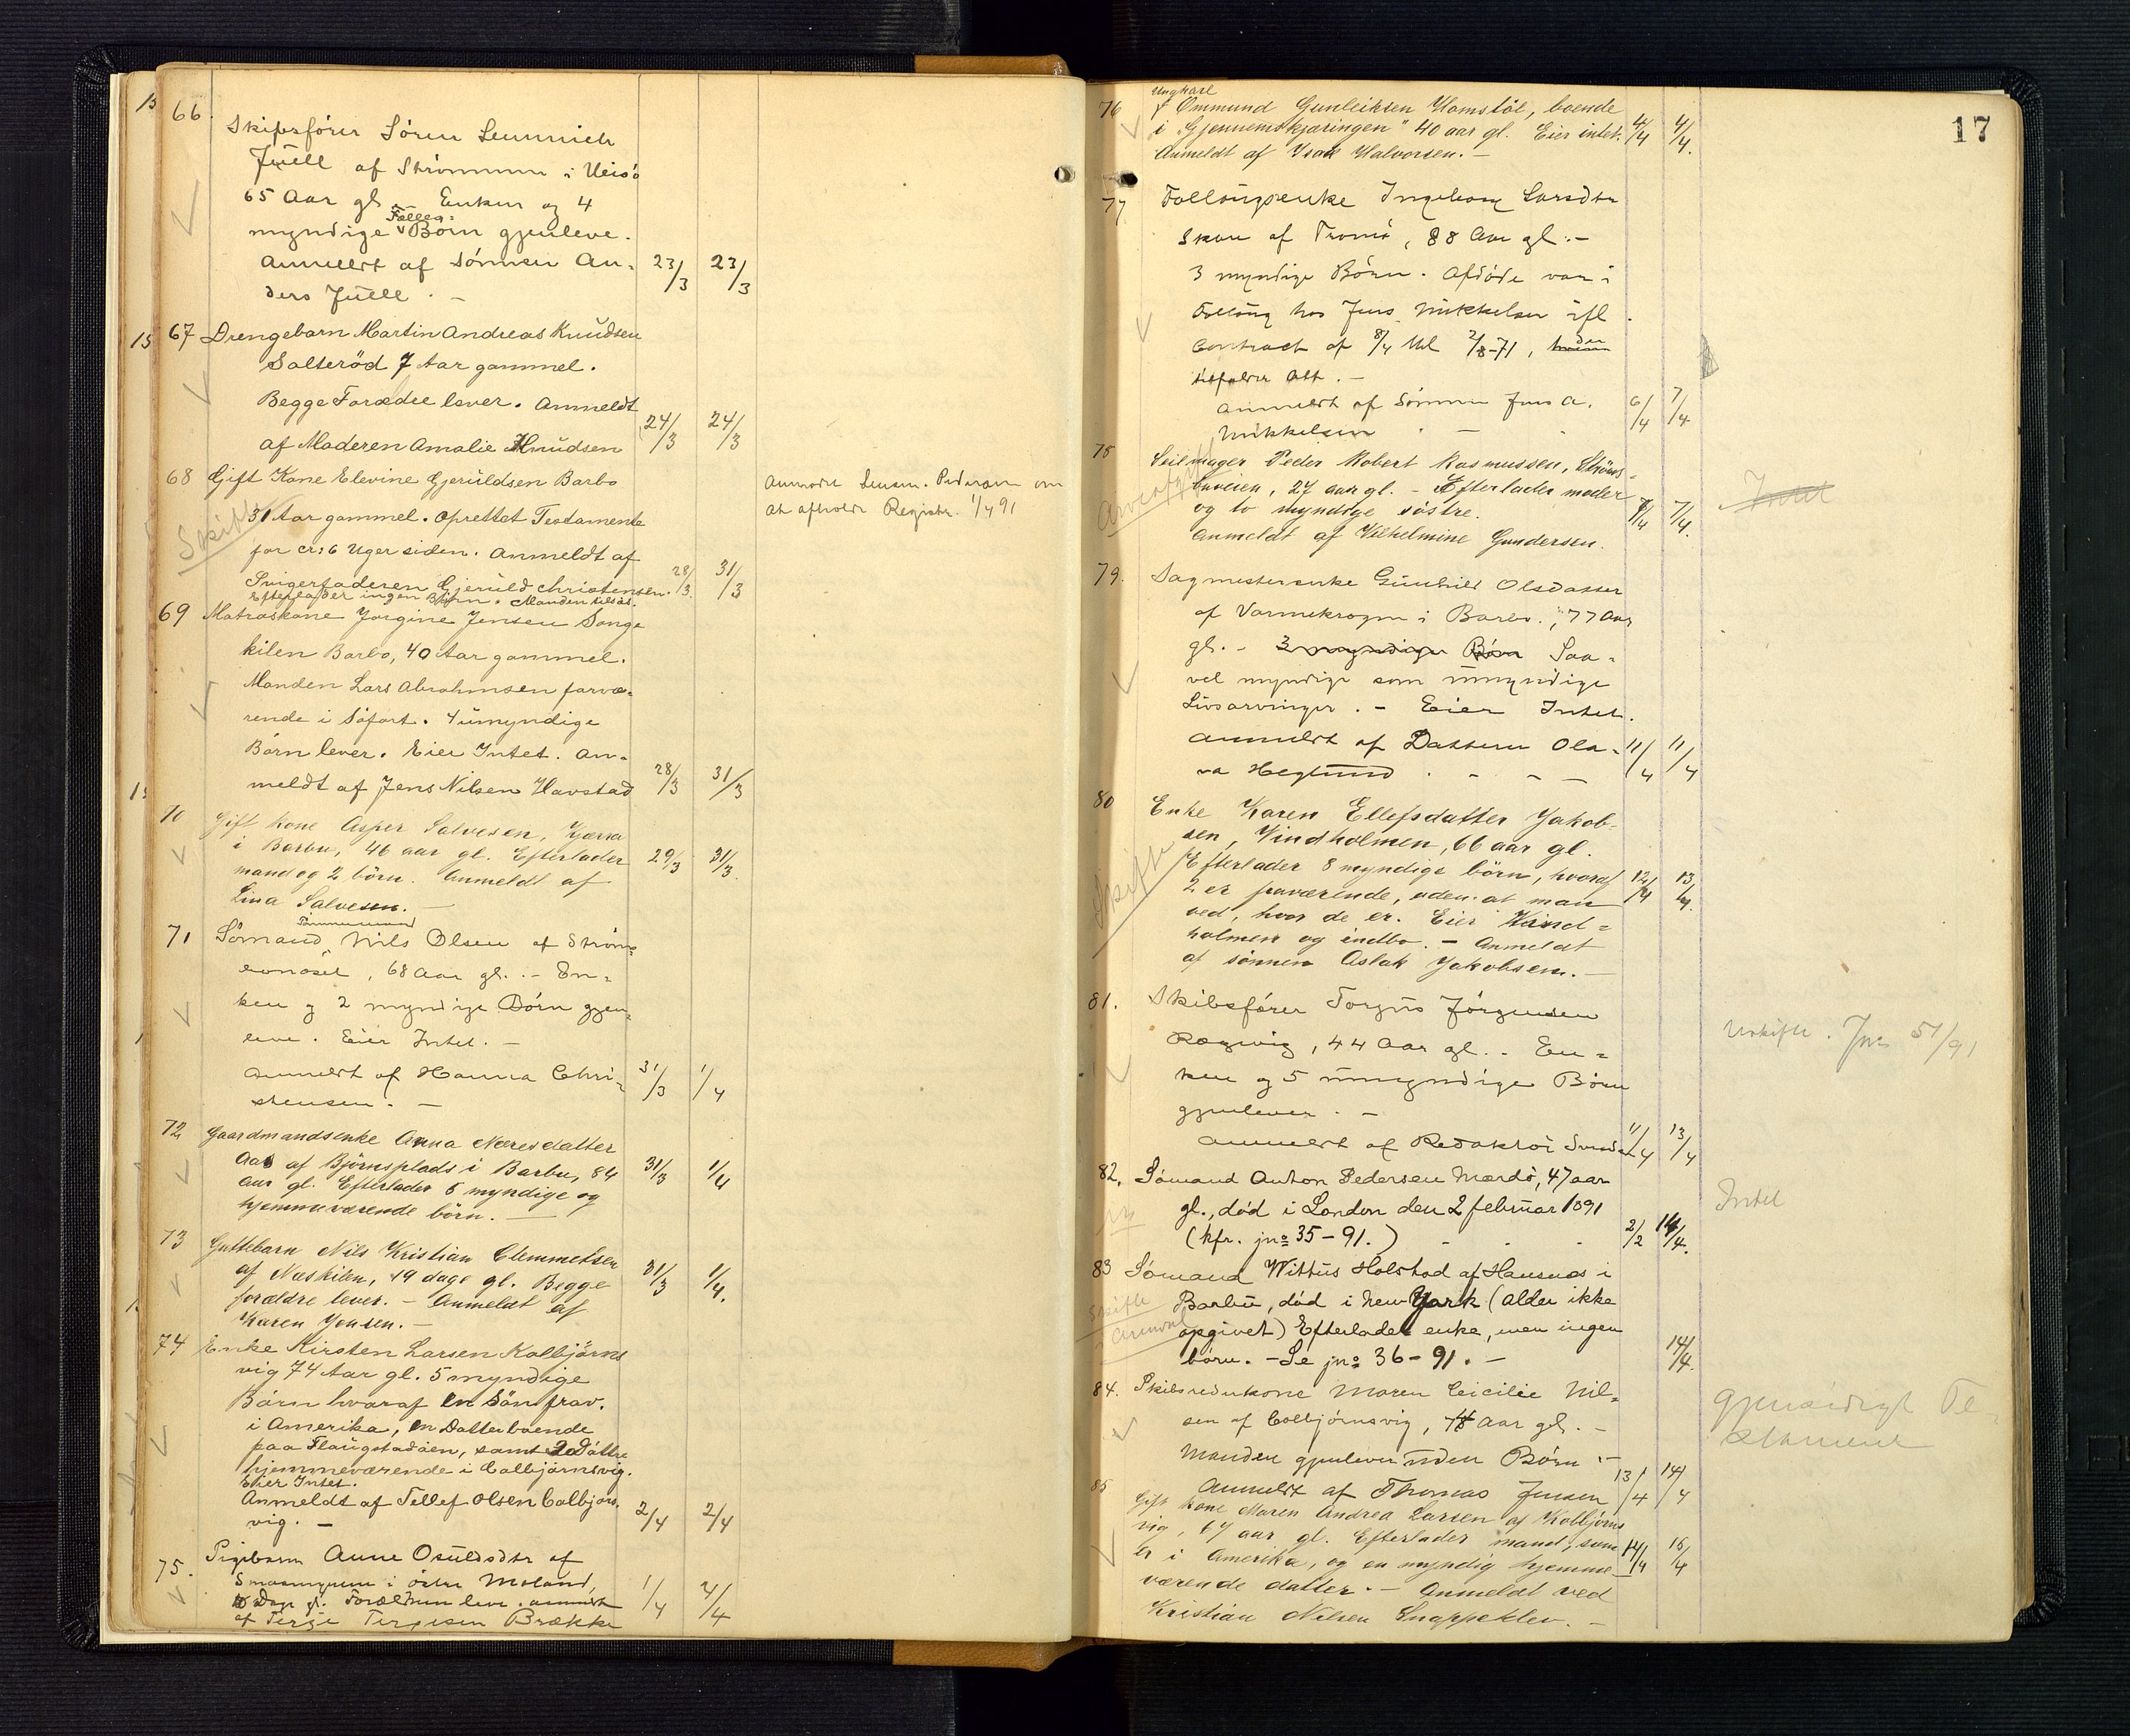 66.
Skibsfører Søren Lemmich
Juell af Strømmen i Øiestø
65 Aar gl. Enken og 4
myndige Fælles=Børn gjenleve.
Anmeldt af Sønnen An=
ders Juell. — 23/3 23/3
67 Drengebarn Martin Andreas Knudsen
Salterød 7 Aar gammel.
Begge Forældre lever. Anmeldt
af Moderen Amalie Knudsen 24/3 24/3
68 Gift Kone Elevine Gjeruldsen Barbo
31 Aar gammel. Oprettet Testamente
for cr: 6 Uger siden. Anmeldt af
Svigerfaderen Gjeruld Christensen. 28/3. 31/3
Efterlader ingen Børn. Manden
Skifte
Anmodet Lensm. Pedersen om
at afholde Registr. 1/4 91
69 Matroskone Jorgine Jensen Songe
kilen Barbo, 40 Aar gammel.
Manden Lars Abrahmsen farvæ=
rende i Søfart. 4 umyndige
Børn lever. Eier Intet. An=
meldt af Jens Nilsen Havstad 28/3 31/3
70 Gift kone Asper Salvesen, Kjærra
i Barbu, 46 aar gl. Efterlader
mand og 2 børn. Anmeldt af
Lina Salvesen. — 29/3 31/3.
71 Sømand, Tømmermand Nils Olsen af Strøms=
bunøset, 68 Aar gl. - En=
ken og 2 myndige Børn gjen=
leve. Eier Intet. —
Anmeldt af Hanna Chri=
stensen. — 31/3 1/4
72 Gaardmandsenke Anna Næresdatter
Aas af Bjørnsplads i Barbu, 84
aar gl. Efterlader 5 myndige og
hjemmeværende børn. — 31/3 1/4
73 Guttebarn Nils Kristian Clemmetsen
af Næskilen, 19 dage gl. Begge
forældre lever. - Anmeldt af
Karen Jonsen. — 31/3 1/4.
74 Enke Kirsten Larsen Kolbjørns
vig 74 Aar gl. 5 myndige
Børn hvoraf en Søn frav.
i Amerika, en Datter boende
paa Flaugstadøen, samt 2 Døttre
hjemmeværende i Colbjørnsvig.
Eier Intet.
Anmeldt af Tellef Olsen Colbjørs.
vig. — 2/4 2/4
75. Pigebarn Anne Osuldsdtr af
Smaamyrene i østre Moland,
Dage gl. Forældrene leve. Anmeldt
af Terje Terjesen Brække 1/4 2/4
17
76 Ungkarl Ommund Gunleiksen Homstøl, boende
i "Gjennemskjæringen" 40 aar gl. Eier intet. 4/4 4/4.
Anmeldt af Isak Halvorsen. —
77 Follougsenke Ingeborg Larsdtr
Skare af Tromø, 88 Aar gl. —
3 myndige Børn. Afdøde var i
Folloug hos Jens Mikkelsen ifl.
Contract af 8/4 thl 2/8-71, der
tilfalder Alt. —
Anmeldt af Sønnen Jens A.
Mikkelsen — 6/4 7/4
78 Seilmager Peder Robert Rasmussen, Strøms=
buveien, 27 aar gl. - Efterlader moder
og to myndige søstre. 7/4 7/4.
Anmeldt af Vilhelmine Gundersen.
Intet
79. Sagmesterenke Gunhild Olsdatter
af Varmekrogen i Barbo, 77 Aar
gl. - 3 myndige Børn Saa=
vel myndige som umyndige
Livsarvinger. - Eier Intet.
Anmeldt af Datteren Ola=
va Heglund. — 11/4 11/4
80 Enke Karen Ellefsdatter Jakob=
sen, Vindholmen, 66 aar gl.
Efterlader 8 myndige børn, hvoraf
2 er fraværende, uden at man
ved, hvor de er. Eier Vind=
holmen og indbo. - Anmeldt
af sønnen Aslak Jakobsen. — 12/4 13/4.
Skifte
81. Skibsfører Torjus Jørgensen
Rægevig, 44 Aar gl. - En=
ken og 5 umyndige Børn
gjenlever. —
Anmeldt af Redaktør 11/4 13/4
Uskifte. Jno 51/91
82. Sømand Anton Pedersen Mærdø, 47 aar
gl., død i London den 2 februar 1891
(kfr. jno 35-91.) 2/2 14/4.
Intet
83 Sømand Wittus Holstad af Hansnæs i
Barbu, død i New York (alder ikke
opgivet) Efterlader enke, men ingen
børn. - Se jno 36-91. — 14/4.
Skifte
84. Skibsrederkone Maren Ceicilie Nil=
sen af Colbjørnsvig, 78 Aar gl. -
Manden gjenlever uden Børn. -
Anmeldt af Thomas Jensen 13/4 14/4
gjensidigt Te=
stament
85 Gift kone Maren Andrea Larsen af Kolbjørns
vig, 67 aar gl. Efterlader mand, som
er i Amerika, og en myndig hjemme=
værende datter. - Anmeldt ved
Kristian Nilsen Snappeklev. — 14/4 15/4